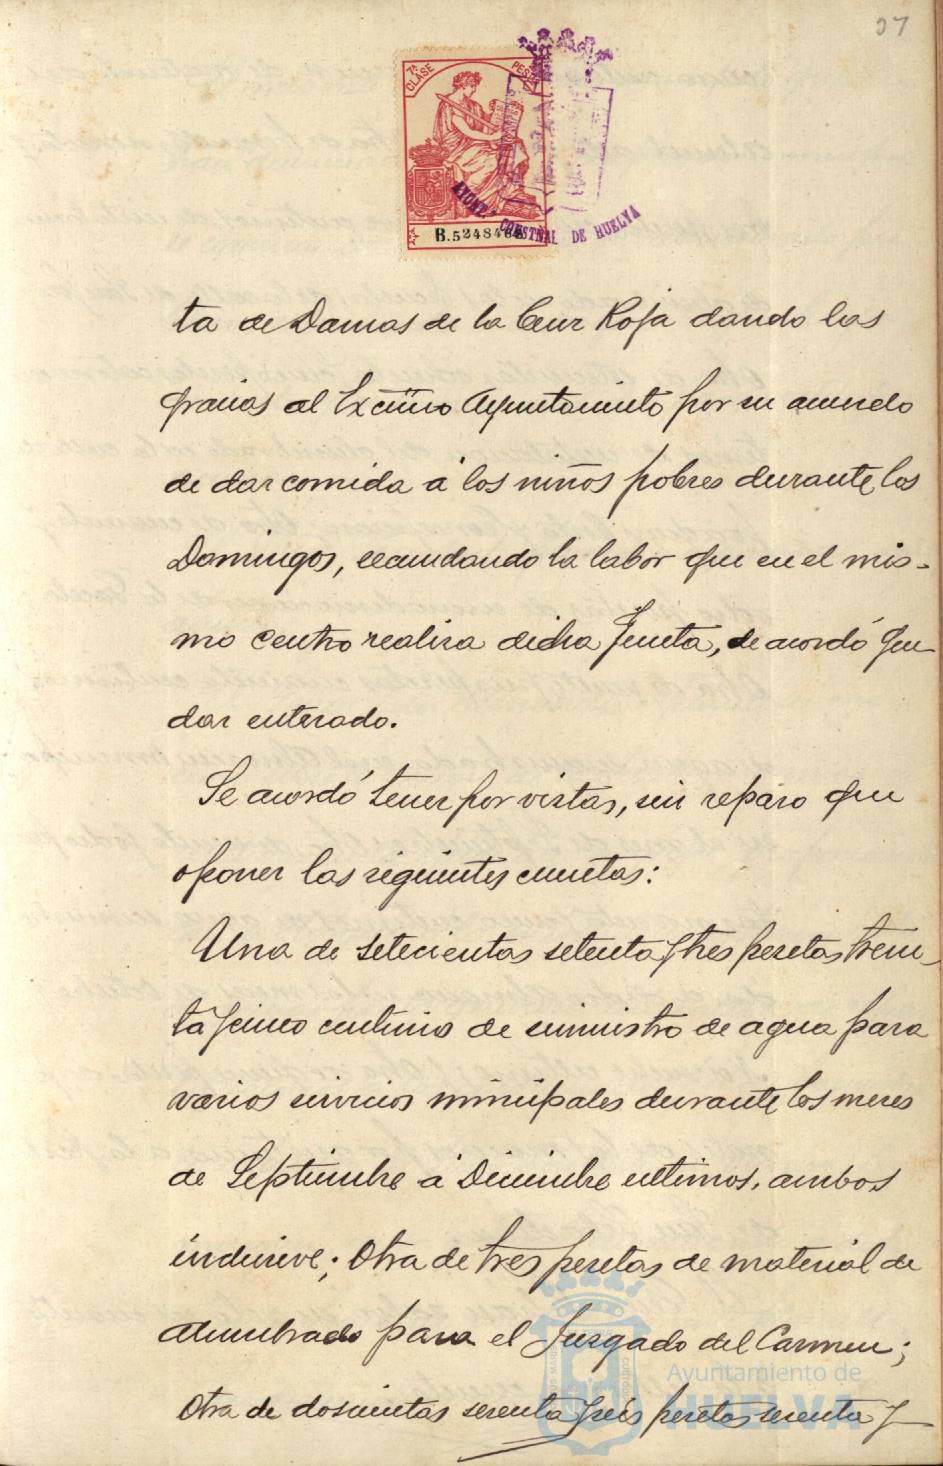 27
7ª CLASE PESE
B.5248486
AYONTº CONSTNAL DE HUELVA
ta de Damas de la Cruz Roja dando las
gracias al Excmo Ayuntamiento por su acuerdo
de dar comida á los niños pobres durante los
Domingos, secundando la labor que en el mis-
mo centro realiza dicha Junta, se acordó que
dar enterado.
Se acordó tener por vistas, sin reparo que
oponer las siguientes cuentas:
Una de setecientas setenta y tres pesetas trein-
ta y cinco centimos de suministro de agua para
varios servicios municipales durante los meses
de Septiembre á Diciembre ultimos, ambos
inclusive; Otra de tres pesetas de material de
alumbrado para el Juzgado del Carmen;
Otra de doscientas sesenta y seis pesetas sesenta y
Ayuntamiento de
HUELVA